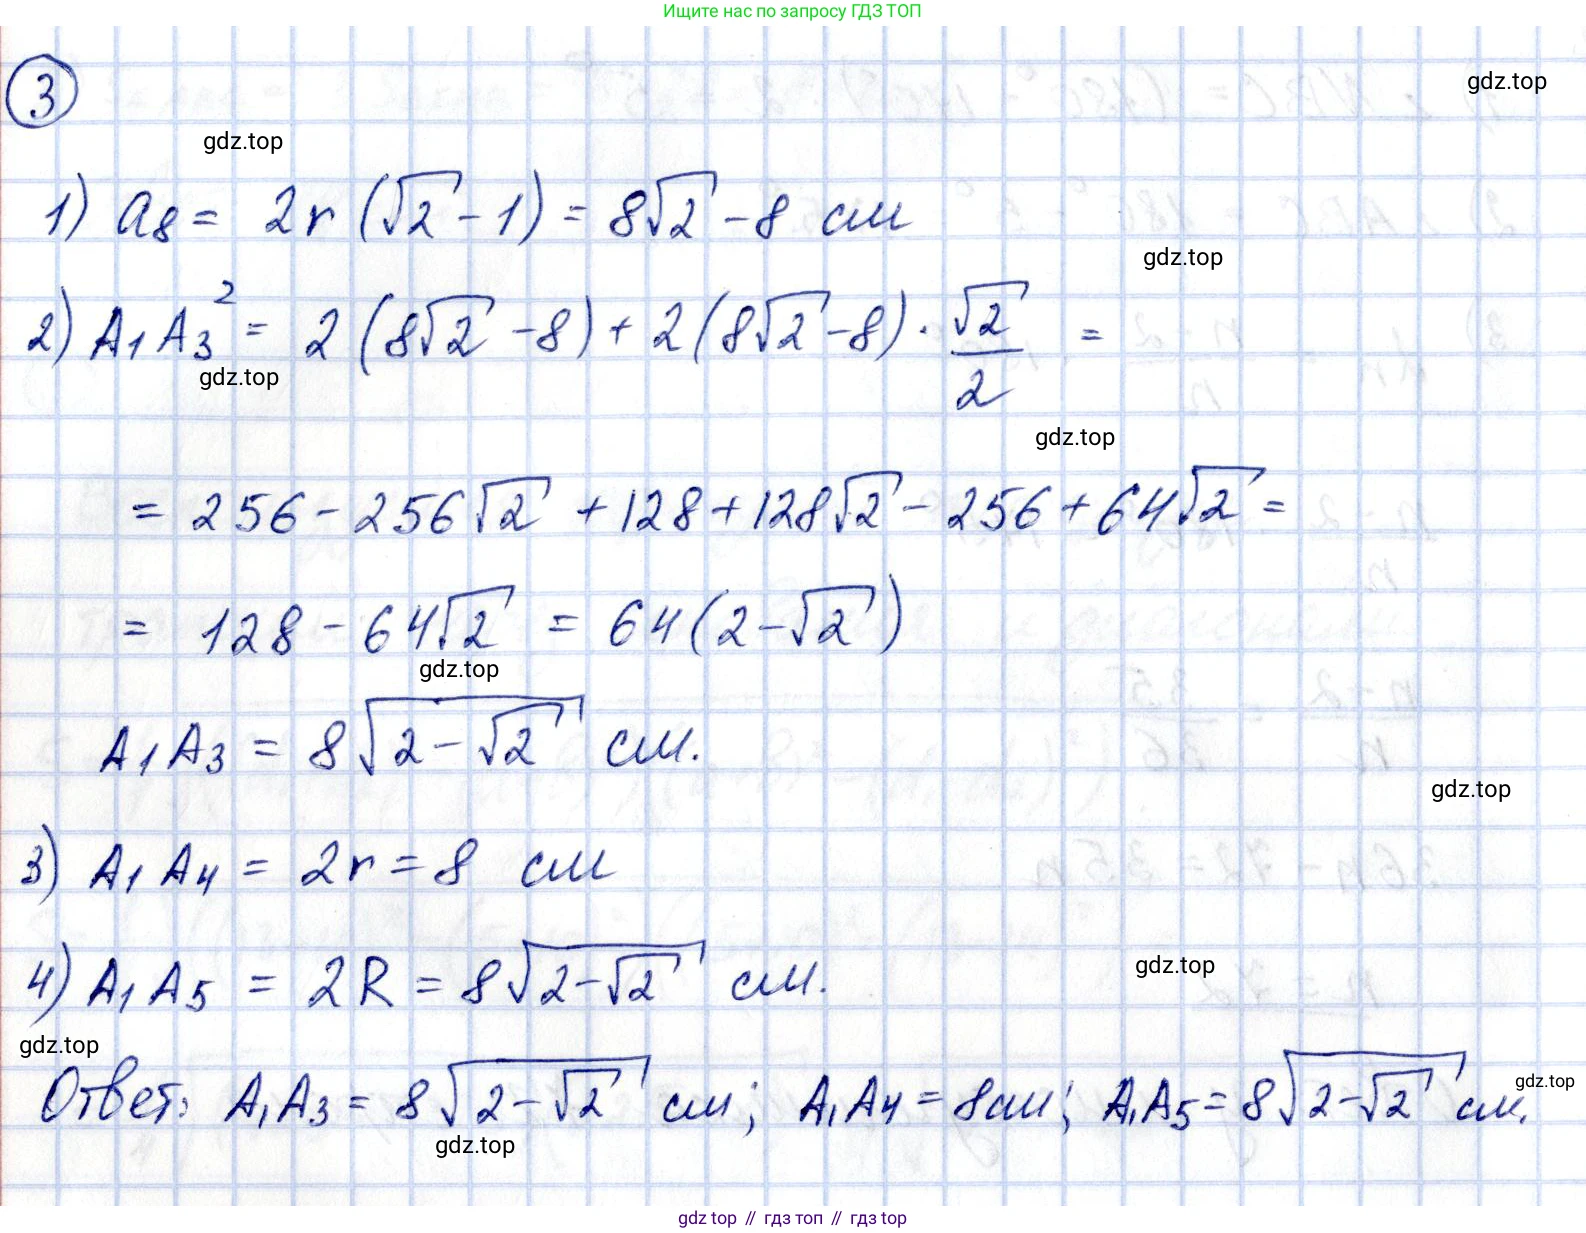 Ищите нас по запросу ГДЗ ТОП
3
gdz.top
gdz.top
1) a₈ = 2r(√2 - 1) = 8√2 - 8 см
gdz.top
2) A₁A₃² = 2(8√2 - 8) + 2(8√2 - 8) · √2/2 =
gdz.top
gdz.top
= 256 - 256√2 + 128 + 128√2 - 256 + 64√2 =
= 128 - 64√2 = 64(2 - √2)
gdz.top
A₁A₃ = 8√(2 - √2) см.
gdz.top
3) A₁A₄ = 2r = 8 см
4) A₁A₅ = 2R = 8√(2 - √2) см.
gdz.top
gdz.top
Ответ: A₁A₃ = 8√(2 - √2) см; A₁A₄ = 8см; A₁A₅ = 8√(2 - √2) см.
gdz.top
gdz.top
gdz top // гдз топ // гдз top